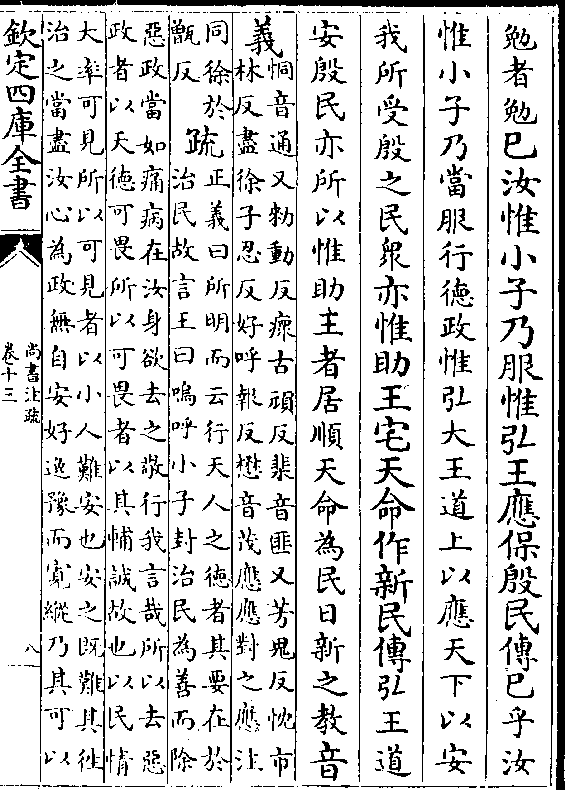 勉者勉已汝惟小子乃服惟弘王應保殷民傳已乎汝
惟小子乃當服行德政惟弘大王道上以應天下以安
我所受殷之民衆亦惟助王宅天命作新民傳弘王道
安殷民亦所以惟助王者居順天命為民日新之教音
義恫音通又勑動反瘝古頑反棐音匪又芳鬼反忱市
林反盡徐子忍反好呼報反懋音茂應應對之應注
同徐於
甑反
疏正義曰所明而云行天人之德者其要在於
治民故言王曰嗚呼小子封治民為善而除
惡政當如痛病在汝身欲去之敬行我言哉所以去惡
政者以天德可畏所以可畏者以其輔誠故也以民情
大率可見所以可見者以小人難安也安之既難其徃
治之當盡汝心為政無自安好逸豫而寛縱乃其可以
欽定四庫全書
尚書注疏
卷十三
八